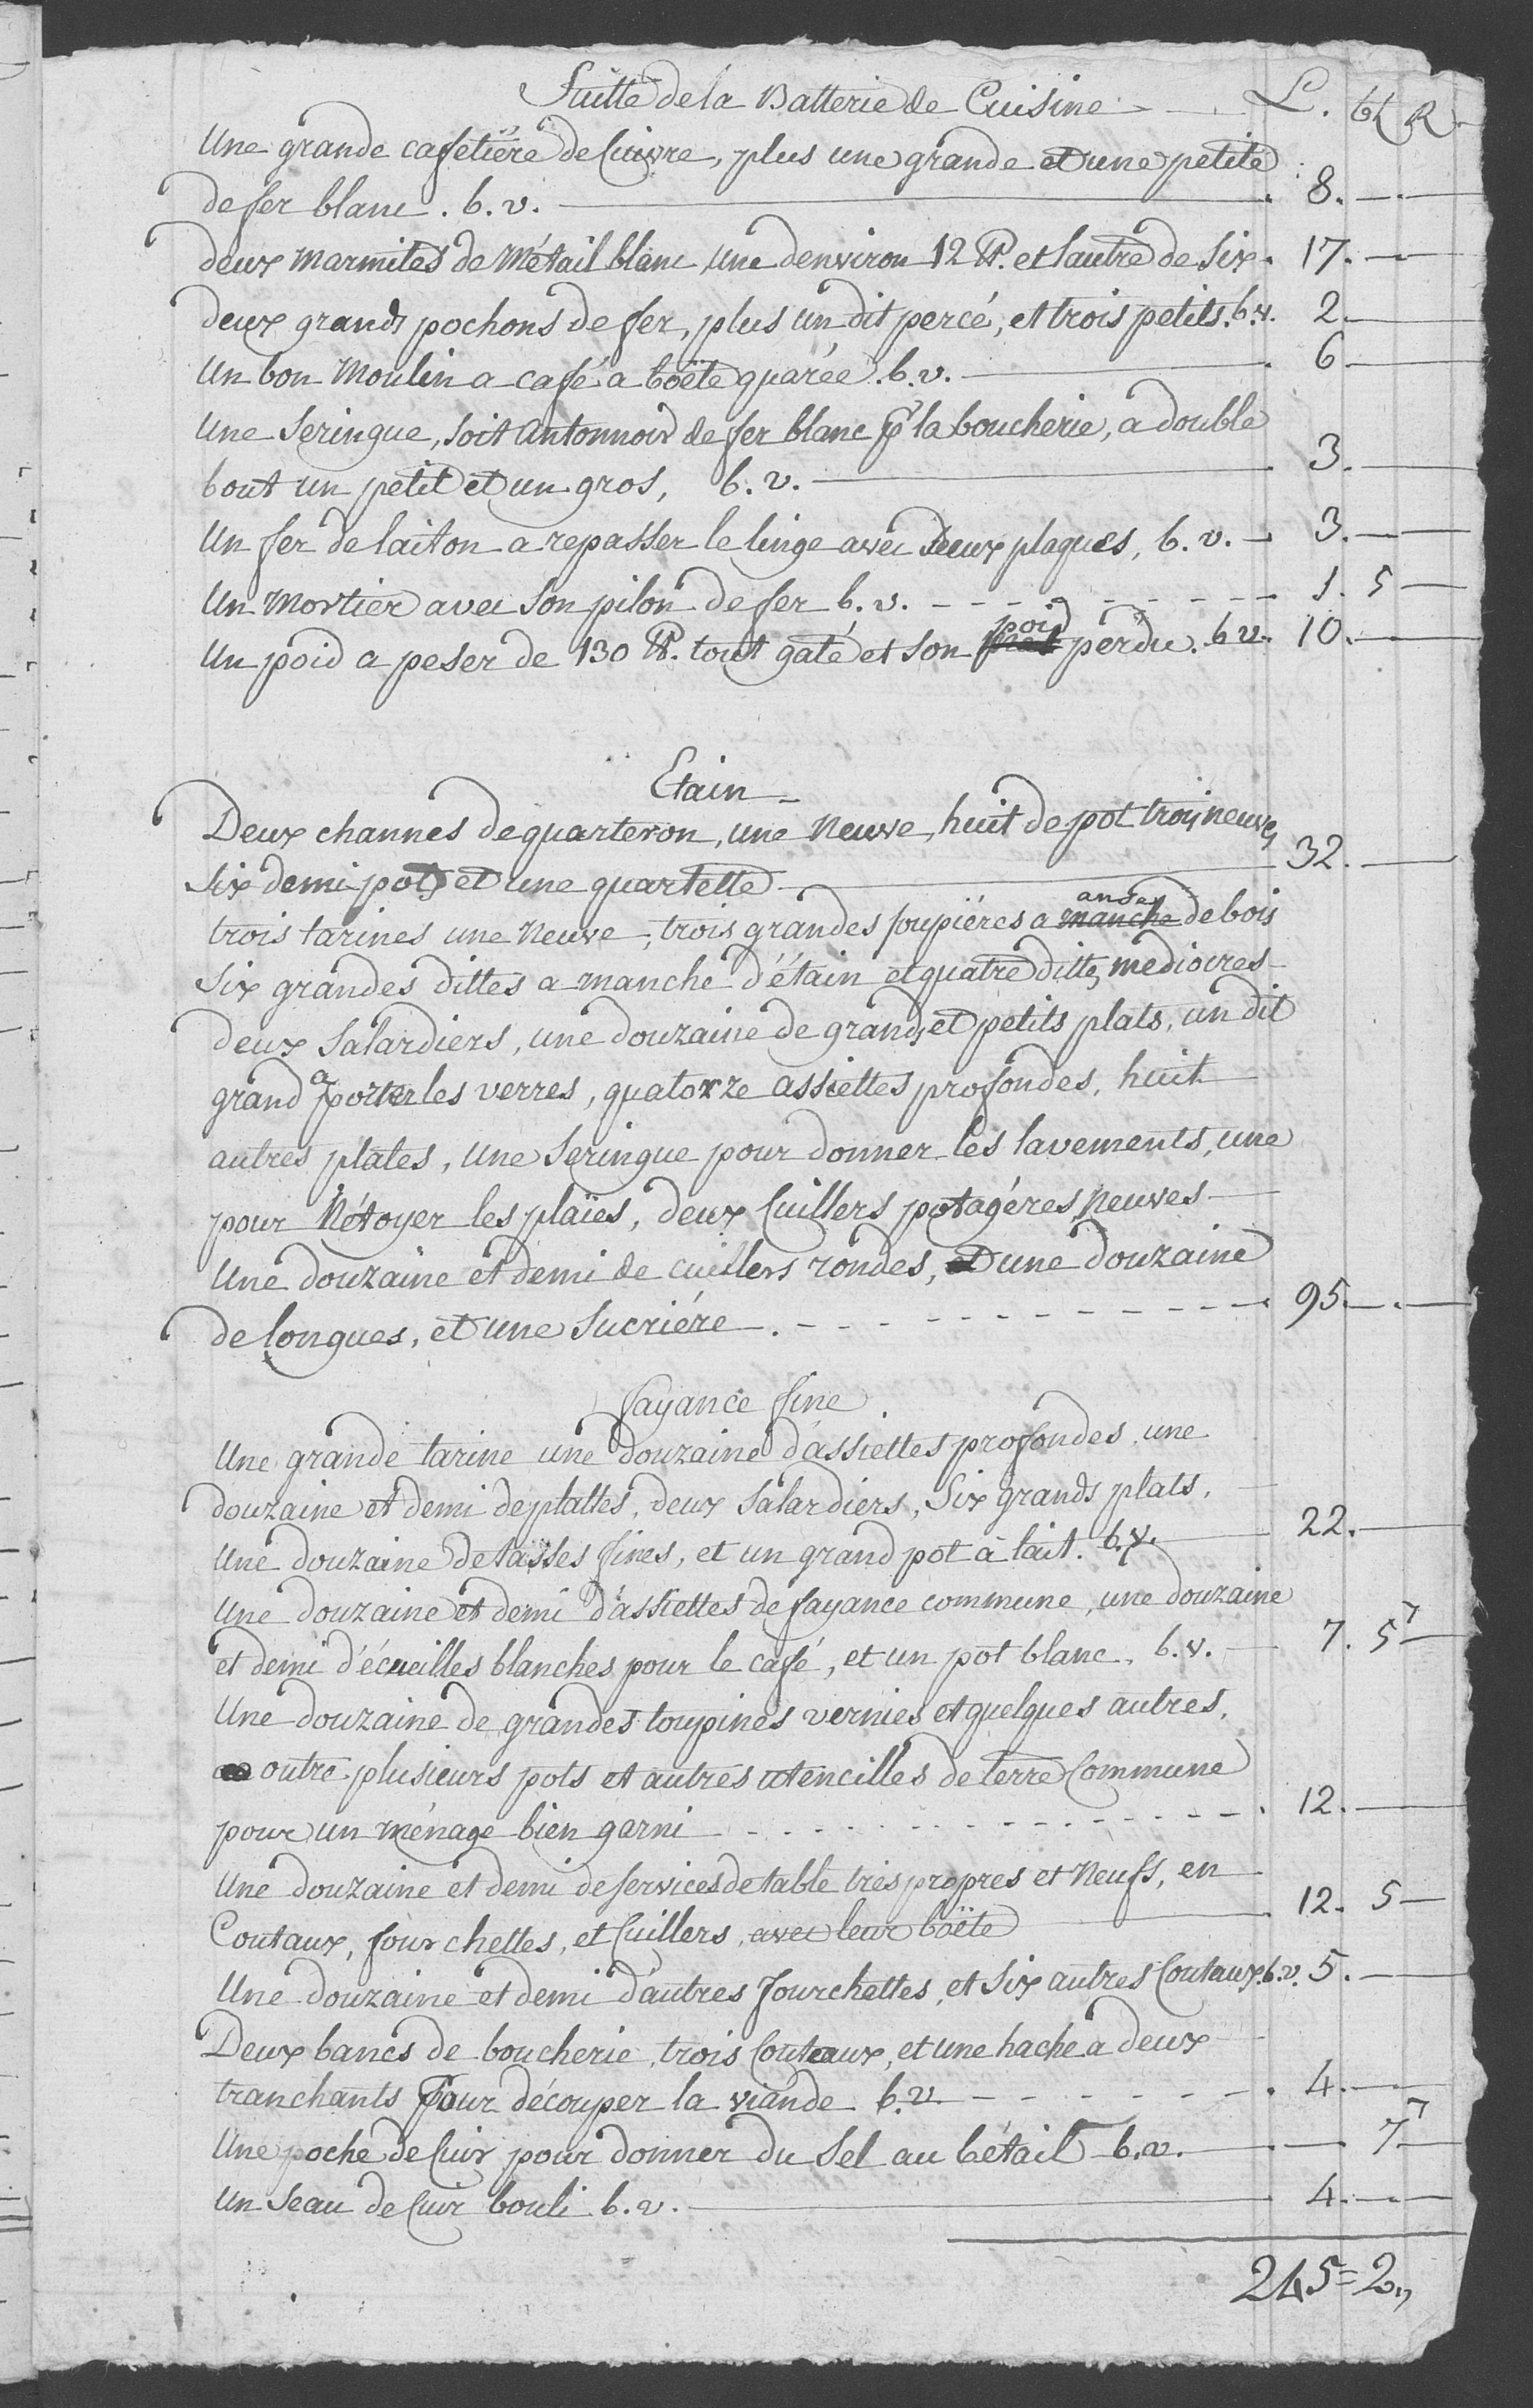 Suitte de la Batterie de Cuisine L. bt R.
Une grande cafetière de Cuivre, plus une grande et une petite
de fer blanc. b. v. 8.
deux marmites de métail blanc, une denviron 12 ℔. et lautre de Six. 17.
deux grands pochons de fer, plus un dit percé, et trois petits. b.v. 2.
Un bon Moulin a café a boëte quarée. b. v. 6
Une Seringue, Soit Antonnoir de fer blanc pr la boucherie, a double
bout un petit et un gros, b. v. 3.
Un fer de laiton a repasser le linge avec deux plaques, b. v. 3.
Un Mortier avec Son pilon de fer b. v. 1. 5
poid
Un poid a peser de 130 ℔. tout gaté et son perdu. b v. 10.
Etain
Deux channes de quarteron, une Neuve, huit de pot trois neuves,
Six demi pots et une quartette 32.
anses
trois tarines une Neuve, trois grandes soupières a manche de bois
Six grandes dittes a manche d'étain et quatre dittes mediocres
deux Salardiers, une douzaine de grands et petits plats, un dit
grand a porter les verres, quatorze assiettes profondes, huit
autres plates, une Seringue pour donner les lavements, une
pour Nétoyer les plaïes, deux Cuillers potagéres Neuves
Une douzaine et demi de cuillers rondes, et une douzaine
de longues, et une Sucriére. 95.
fayance fine
Une grande tarine une douzaine d'assiettes profondes, une
douzaine et demi de plattes, deux Salardiers, Six grands plats,
Une douzaine de tasses fines, et un grand pot à lait. b. v. 22.
Une douzaine et demi d'assiettes de fayance commune, une douzaine
et demi d'écueilles blanches pour le café, et un pot blanc. b. v. 7. 5 7
Une douzaine de grandes toupines vernies et quelques autres,
outre plusieurs pots et autres utencilles de terre Commune
pour un ménage bien garni 12.
Une douzaine et demi de services de table très propres et Neufs, en
Coutaux, fourchettes, et Cuillers, avec leur boëte 12. 5
Une douzaine et demi d'autres fourchettes, et Six autres Coutaux. b. v. 5.
Deux bancs de boucherie, trois Couteaux, et une hache a deux
tranchants Pour découper la viande b. v. 4.
Une poche de Cuir pour donner du Sel au bétail b. v. 7 7
Un Seau de Cuir bouli b. v. 4.
245=2,,